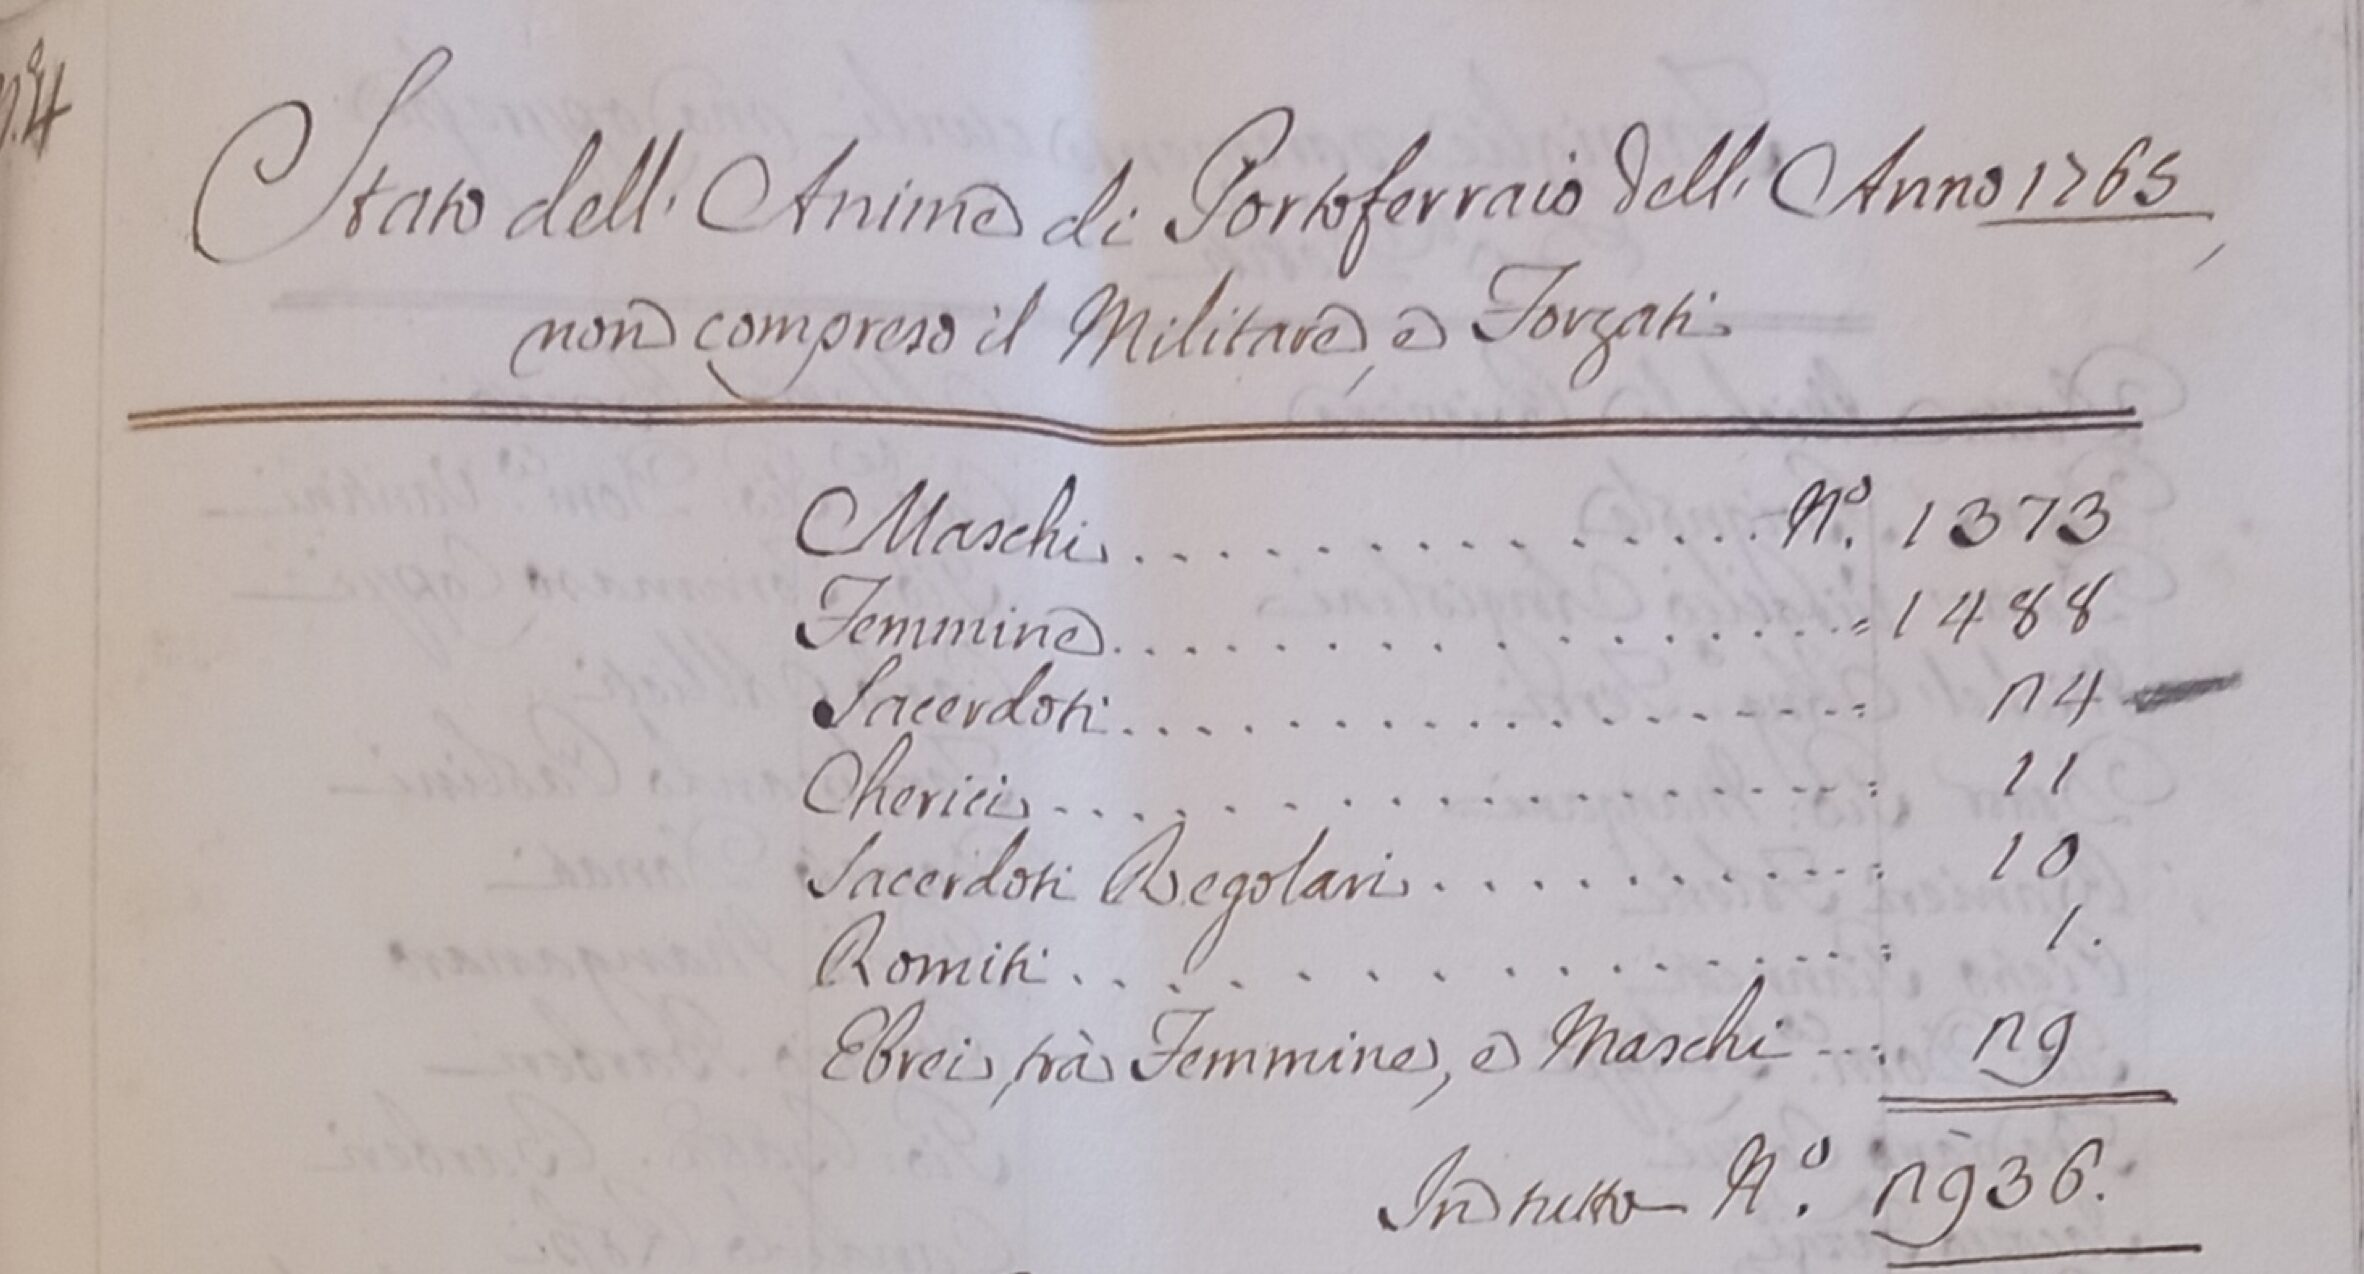 n.º 4
Stato dell' Anime di Portoferraio dell' Anno 1765,
non compreso il Militare, e Forzati
Maschi ................ Nº. 1373
Femmine ................ = 1488
Sacerdoti ................ = 24
Cherici ................ = 11
Sacerdoti Regolari ........... = 10
Romiti ................ = 1.
Ebrei, trà Femmine, e Maschi ... = 29
In tutto Nº. 2936.